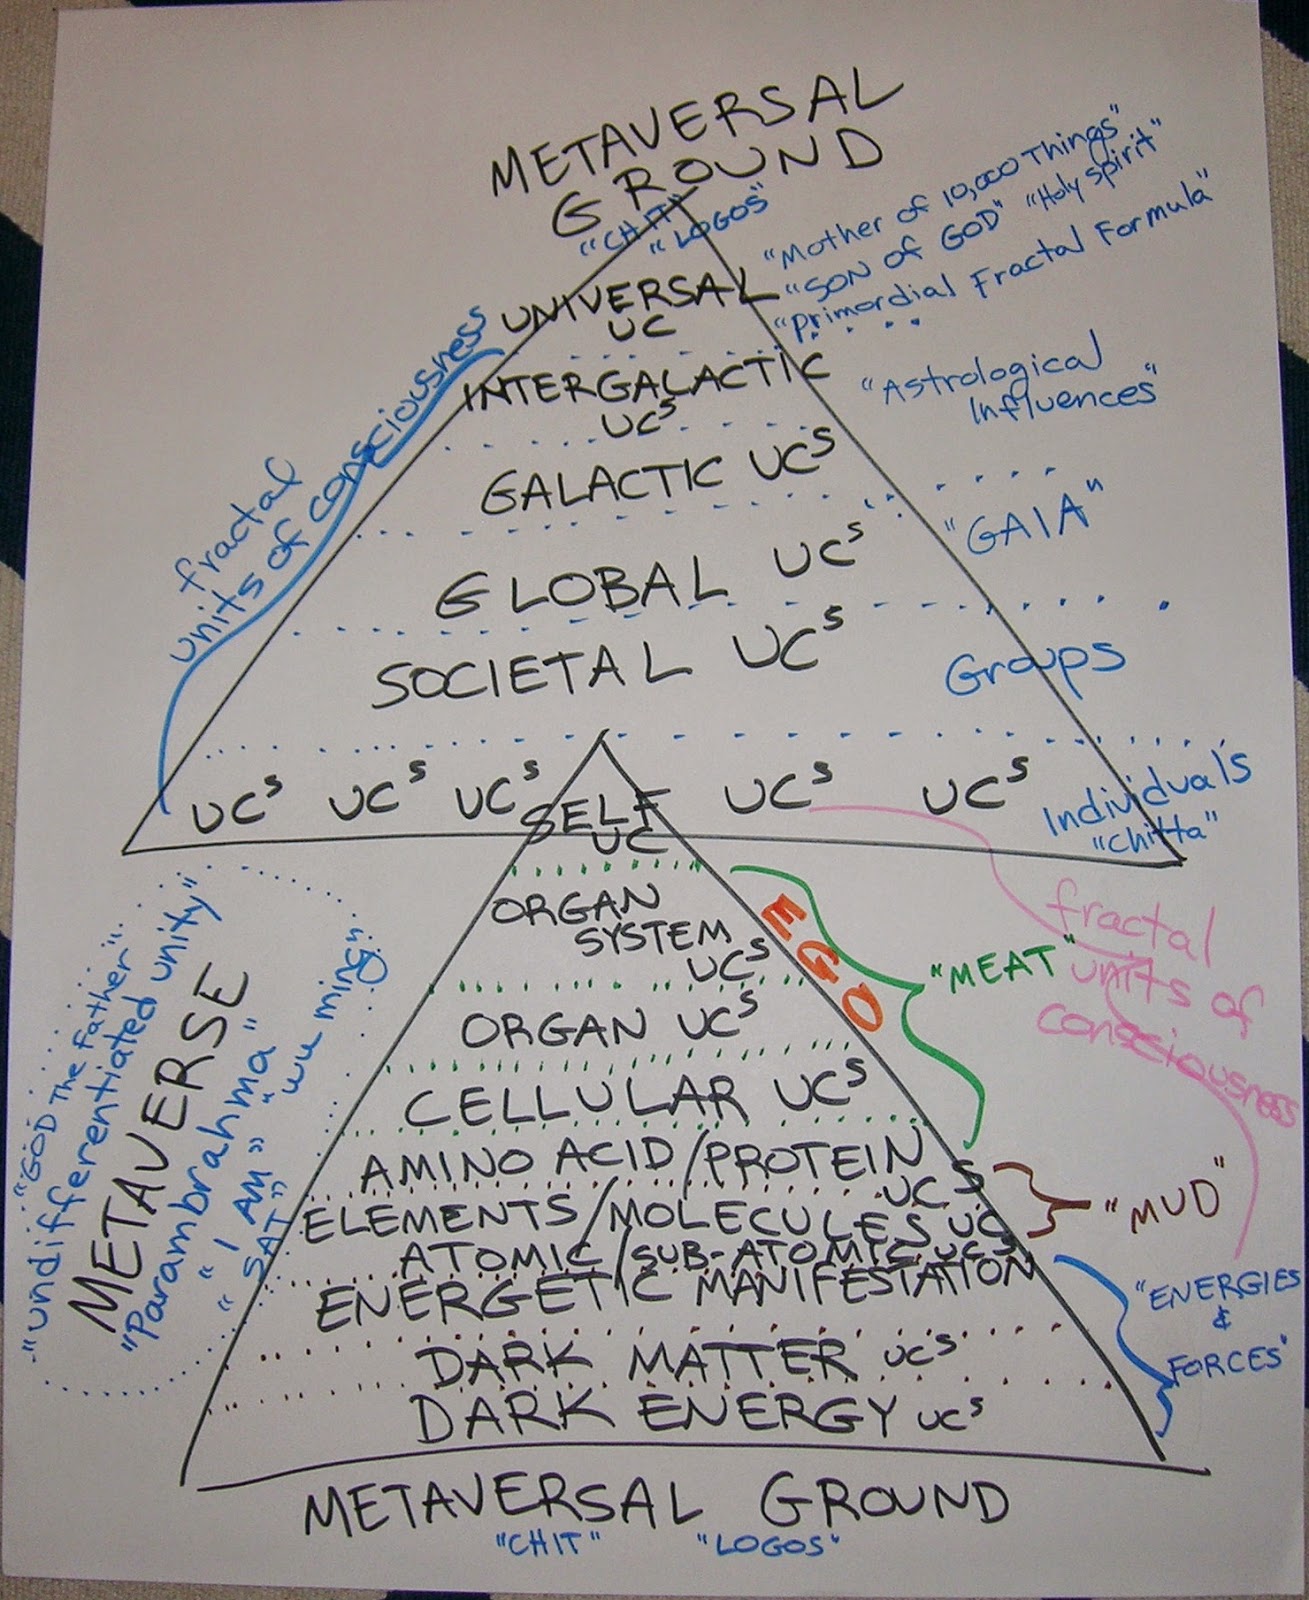 METAVERSAL
GROUND
"CHIT" "LOGOS"
"Mother of 10,000 Things"
"SON of GOD" "Holy Spirit"
"Primordial Fractal Formula"
UNIVERSAL
UC
fractal
units of consciousness
INTERGALACTIC
UCS
"Astrological
Influences"
GALACTIC UCS
"GAIA"
GLOBAL UCS
SOCIETAL UCS
Groups
UCS UCS UCS UCS UCS
SELF
UC
Individual's
"Chitta"
ORGAN
SYSTEM
UCS
EGO
"MEAT"
fractal
units of
consciousness
ORGAN UCS
CELLULAR UCS
AMINO ACID/PROTEIN
UCS
"MUD"
ELEMENTS/MOLECULES UC
ATOMIC/SUB-ATOMIC UCS
ENERGETIC MANIFESTATION
"ENERGIES
&
FORCES"
DARK MATTER UCS
DARK ENERGY UCS
"GOD The Father"
"undifferentiated unity"
METAVERSE
"Parambrahma"
"I AM" "wu ming"
"SAT"
METAVERSAL GROUND
"CHIT" "LOGOS"